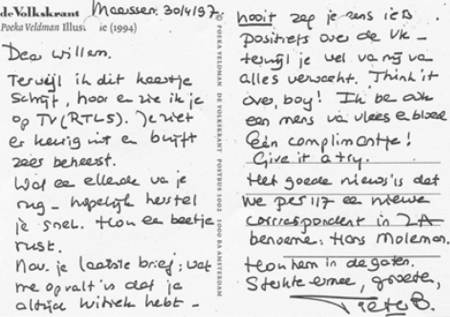 de Volkskrant
Maarssen, 30/4/97.
Poeka Veldman Illus ie (1994)
Dear Willem,
Terwijl ik dit kaartje
schrijf, hoor en zie ik je
op TV (RTL5). Je ziet
er keurig uit en blijft
zeer beheerst.
Wat een ellende va je
rug – hopelijk herstel
je snel. Hou een beetje
rust.
N.a.v. je laatste brief: wat
me opvalt is dat je
altijd kritiek hebt –
POEKA VELDMAN DE VOLKSKRANT POSTBUS 1002 1000 BA AMSTERDAM
nooit zeg je eens iets
positiefs over de Vk –
terwijl je wel va mij va
alles verwacht. Think it
over, boy! Ik be ook
een mens va vlees en bloed
Eén complimentje!
Give it a try.
Het goede nieuws is dat
we per 1/7 een nieuwe
correspondent in ZA
benoeme: Hans Moleman.
Hou hem in de gaten.
Sterkte ermee, groeten,
Pieter B.